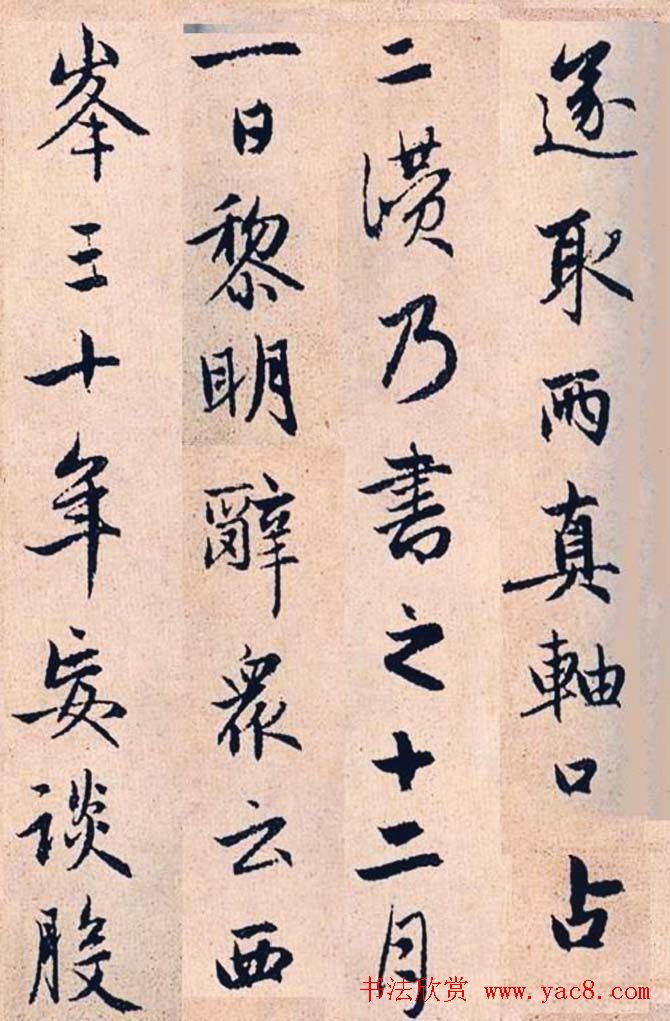 遂取兩真軸口占
二讚乃書之十二月
一日黎明辭眾云西
峯三十年妄談般
书法欣赏 www.yac8.com